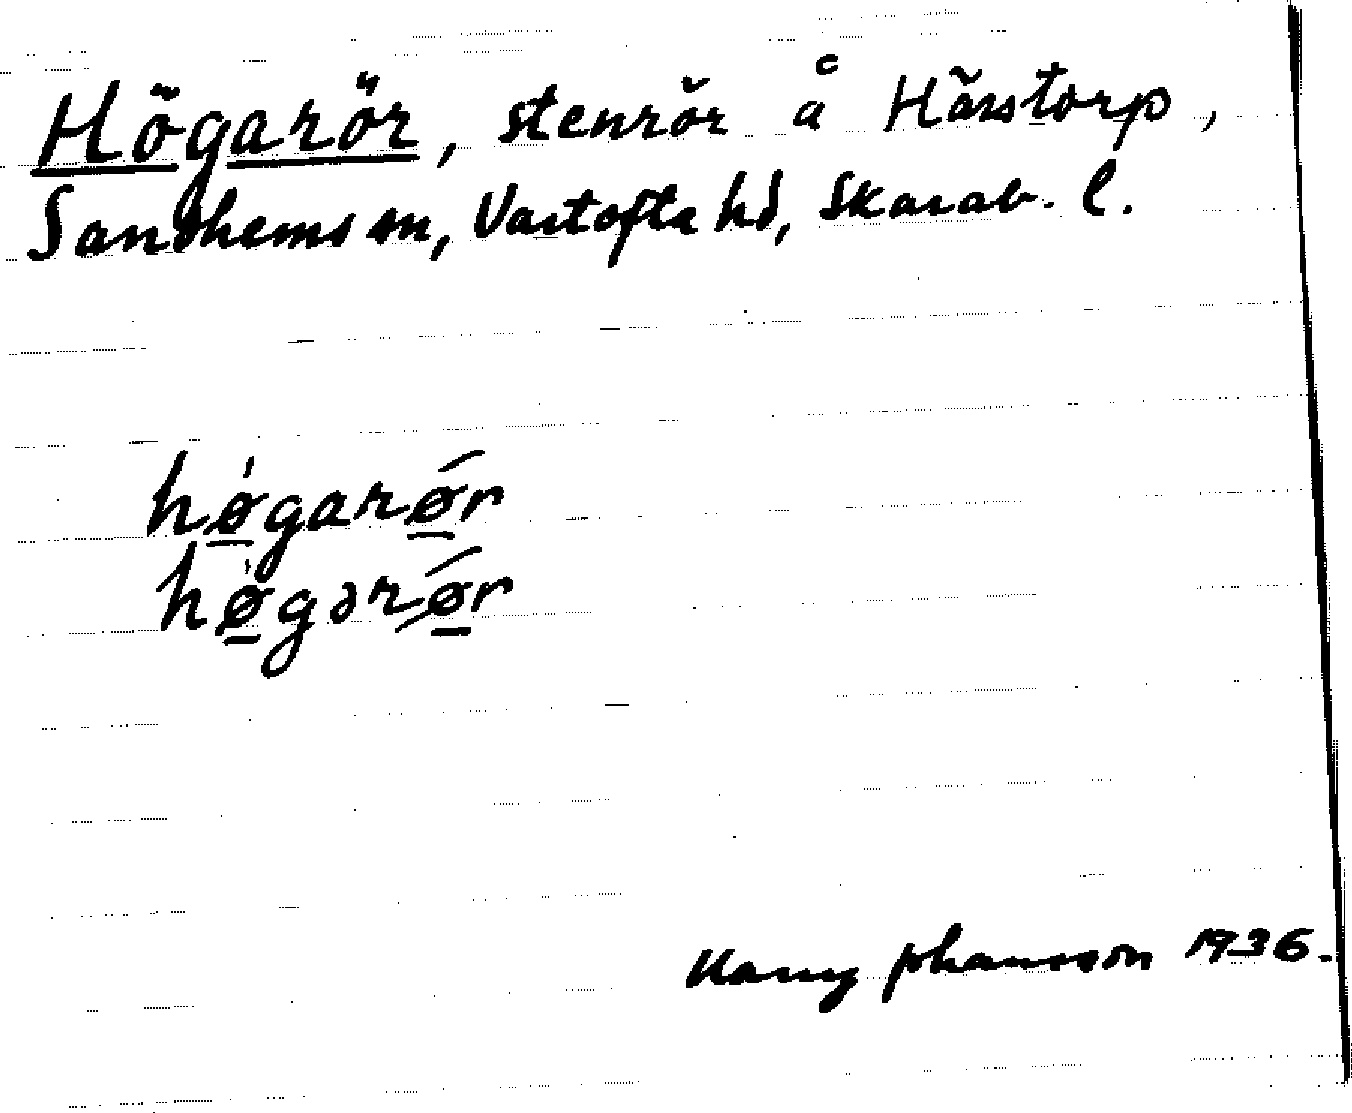 Högarör, stenrör å Härstorp,
Sandhems sn, Vartofta hd, Skarab. l.
hø̲̍garǿ̲r
hø̲̍gərǿ̲r
Harry Johansson 1936.